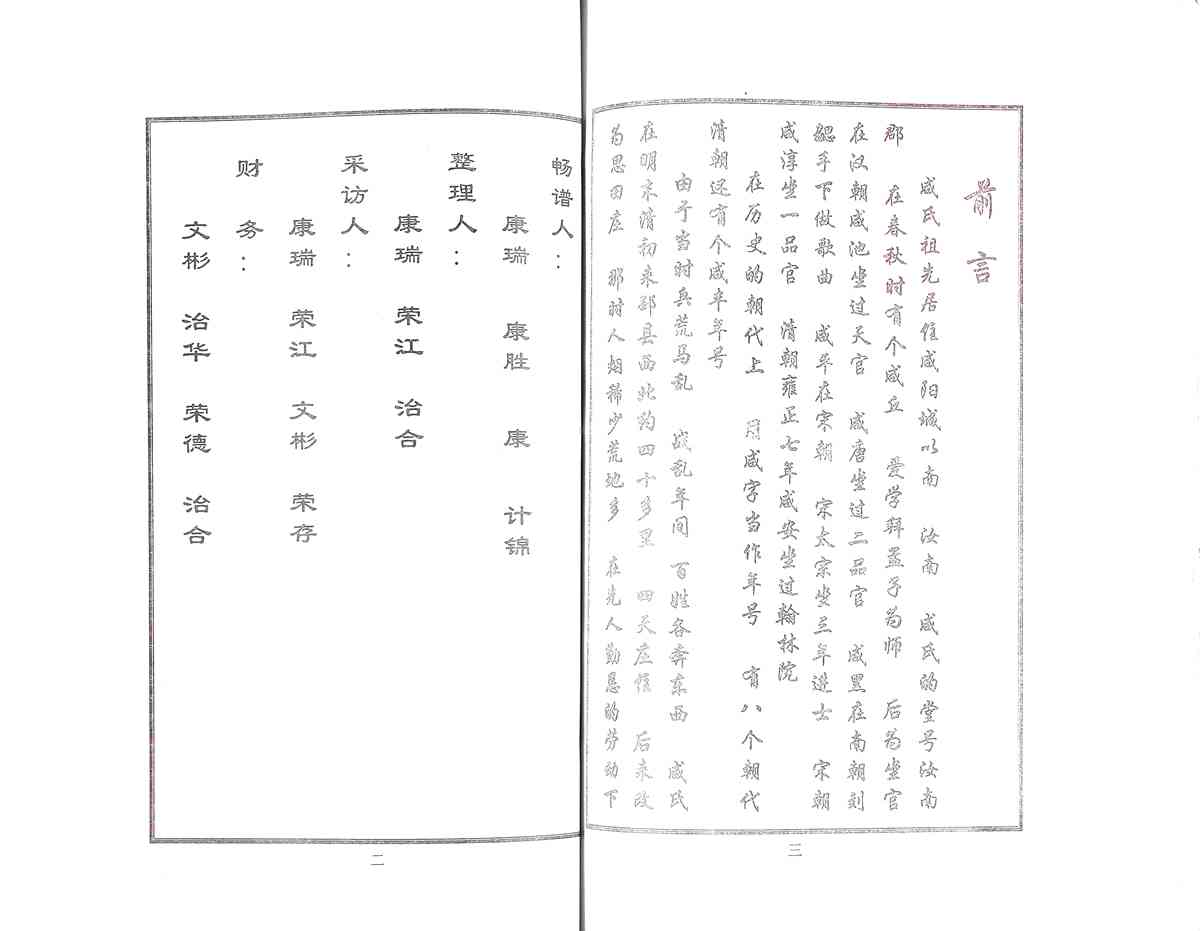 畅谱人：
康瑞 康胜 康 计锦
整理人：
康瑞 荣江 治合
采访人：
康瑞 荣江 文彬 荣存
财务：
文彬 治华 荣德 治合
二
前言
咸氏祖先居住咸阳城以南 汝南 咸氏的堂号汝南
郡 在春秋时有个咸丘 爱学拜孟子为师 后为坐官
在汉朝咸池坐过天官 咸唐坐过二品官 咸黑在南朝刘
勰手下做歌曲 咸平在宋朝 宋太宗坐三年进士 宋朝
咸淳坐一品官 清朝雍正七年咸安坐过翰林院
在历史的朝代上 用咸字当作年号 有八个朝代
清朝还有个咸丰年号
由于当时兵荒马乱 战乱年间 百姓各奔东西 咸氏
在明末清初来县西北约四十多里 四天庄住 后来改
为思田庄 那时人烟稀少荒地多 在先人勤恳的劳动下
三